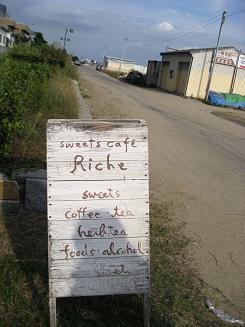 sweets café
Riche
sweets
coffee・tea
herbtea
foods・alcohol